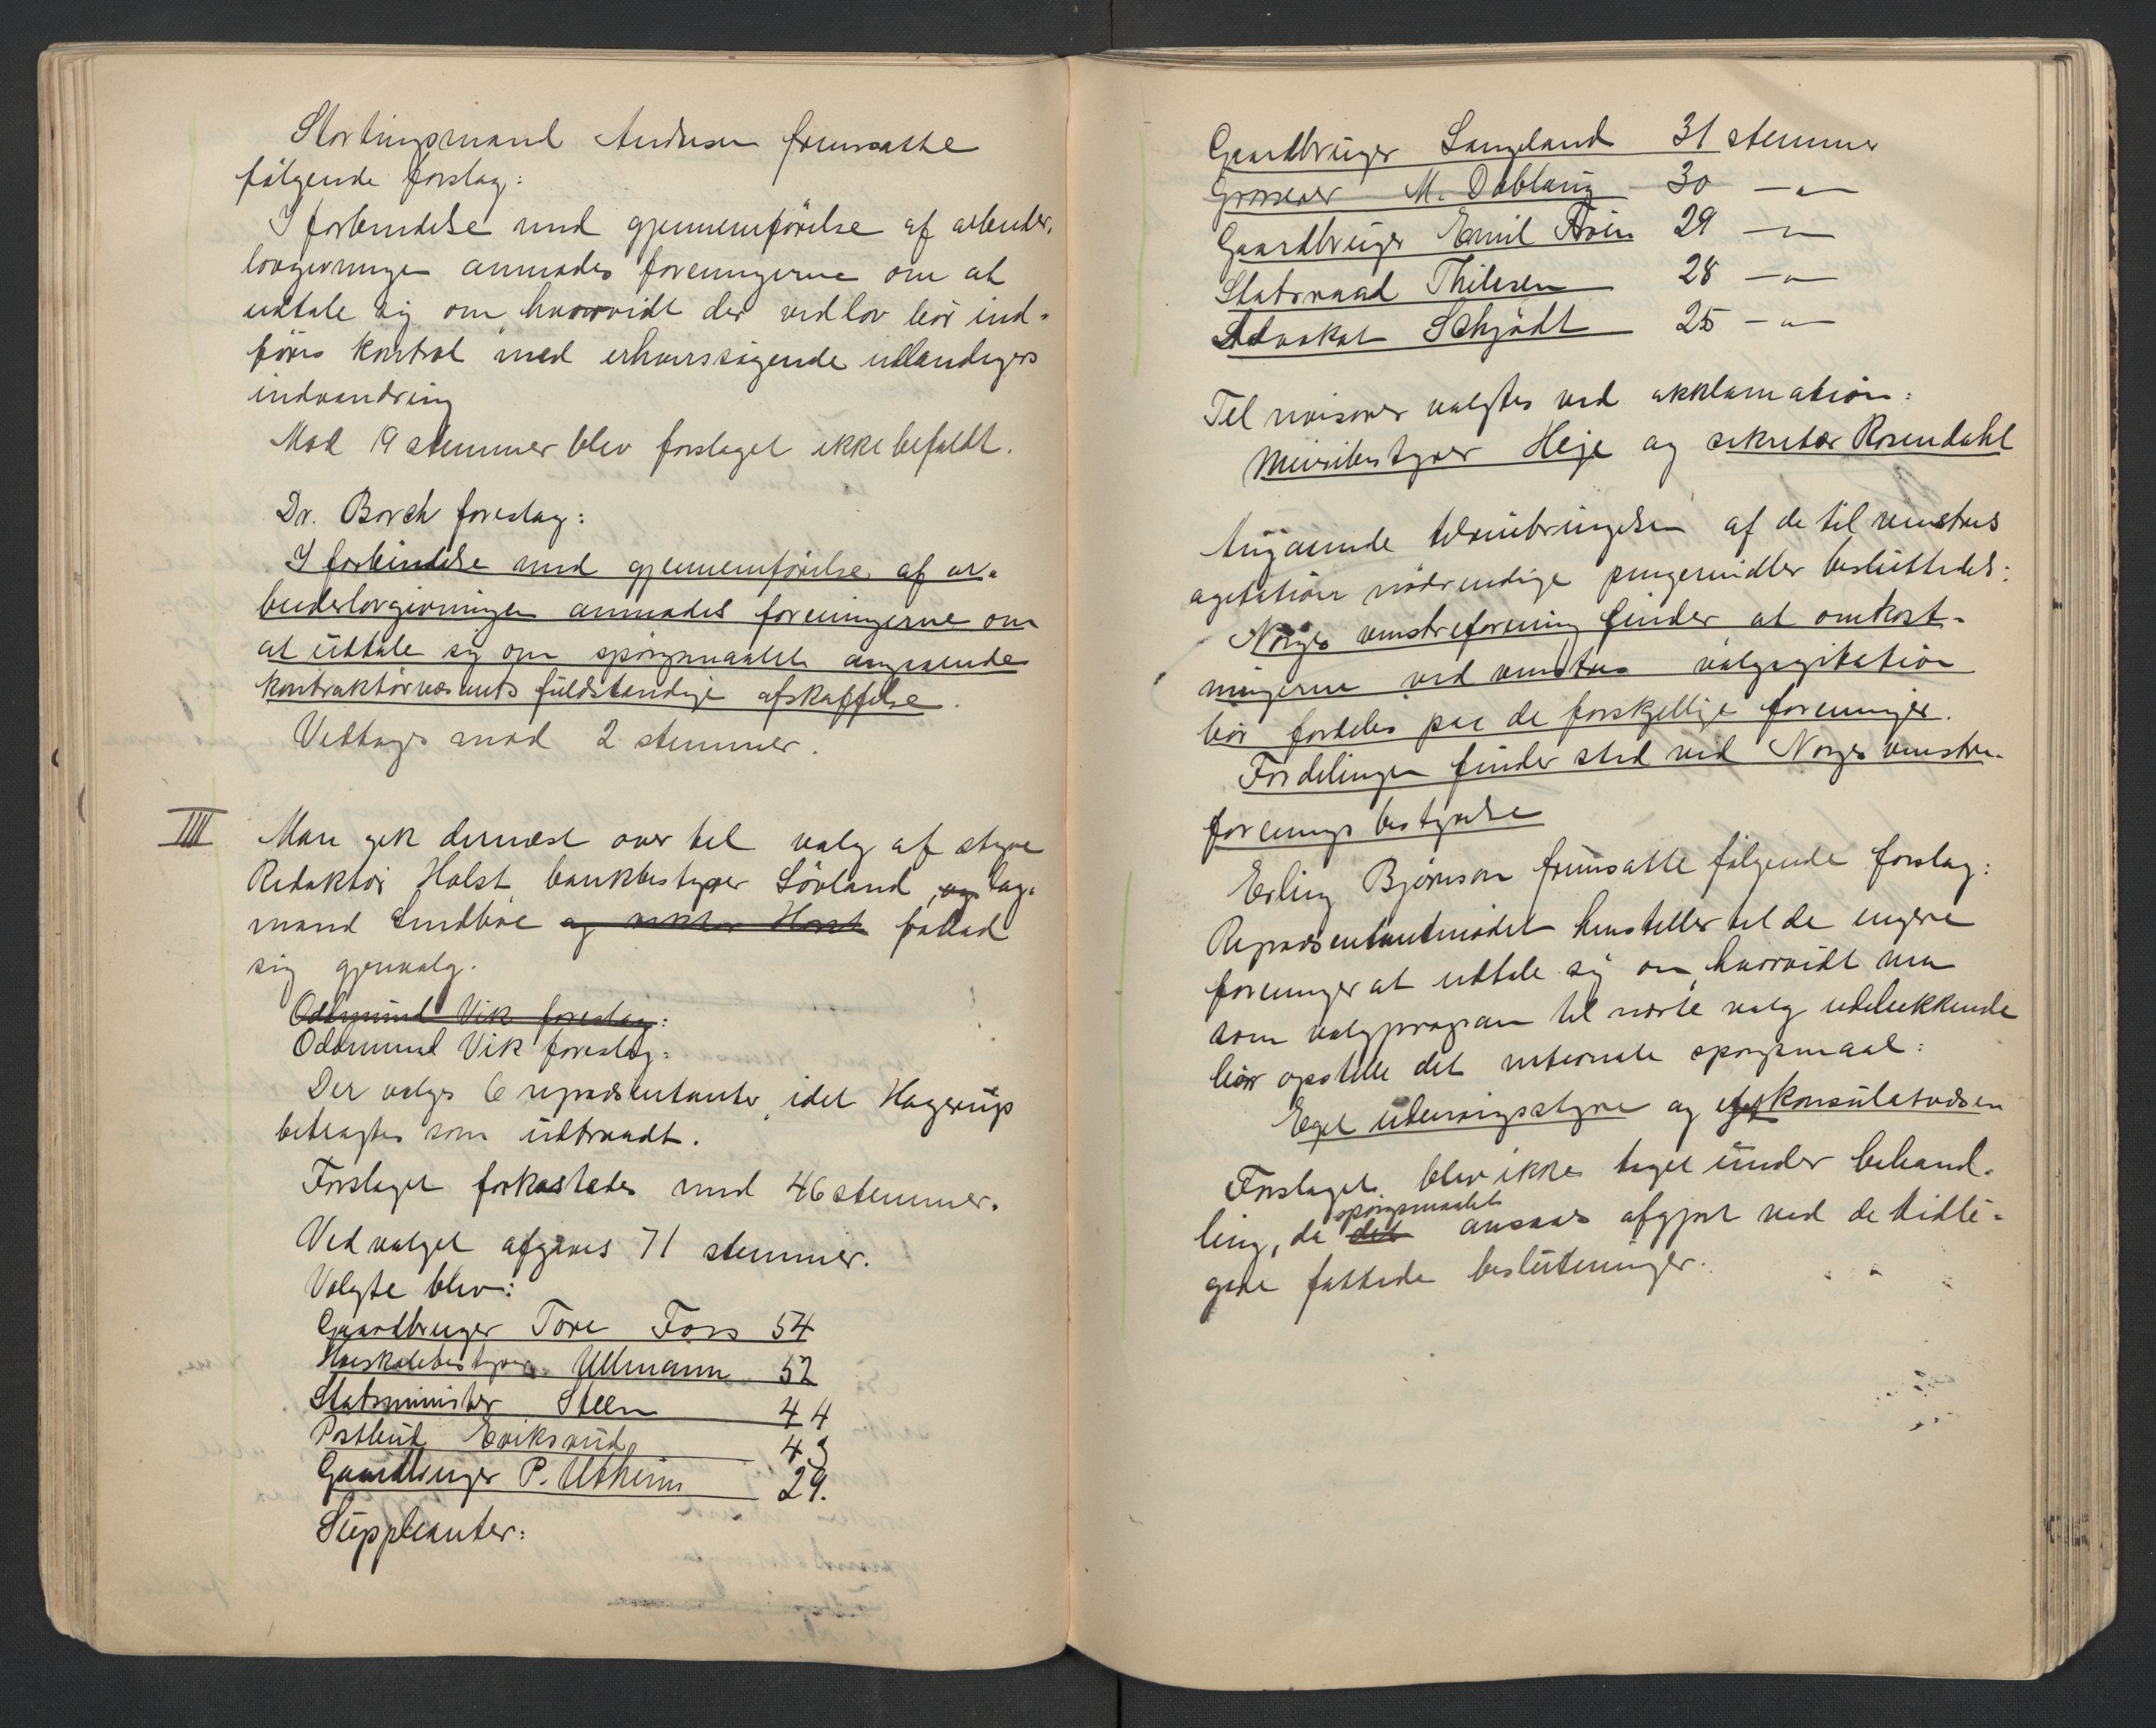 Stortingsmand Andersen fremsatte
følgende forslag:
I forbindelse med gjennemförelse af arbeider-
lovgivningen anmodes foreningerne om at
udtale sig om hvorvidt der ved lov bör ind-
föres kontrol med erhvervssögende udlændigers
indvandring
Mod 19 stemmer blev forslaget ikke bifaldt.
Dr. Borch foreslog:
I forbindelse med gjennemförelse af ar-
beiderlovgivningen anmodes foreningerne om
at udtale sig om spörgsmaalet angaaende
kontraktörvæsenets fuldstændige afskaffelse.
Vedtages mod 2 stemmer.
III Man gik dernæst over til valg af styre
Redaktör Holst bankbestyrer Lövland, og lag-
mand Lindböe og rektor Horst frabad
sig gjenvalg.
Oddmund Vik foreslog:
Oddmund Vik foreslog:
Der vælges 6 repræsentanter, idet Hagerup
betragtes som udtraadt.
Forslaget forkastedes med 46 stemmer.
Ved valget afgaves 71 stemmer.
Valgte blev:
Gaardbruger Tore Foss 54
Høiskolebestyrer Ullmann 52
Statsminister Steen 44
Postbud Eriksrud 43
Gaardbruger P. Utheim 29.
Suppleanter:
Gaardbruger Langeland 31 stemmer
Grosserer M. Dobloug 30 —"—
Gaardbruger Emil 29 —"—
Statsraad Thilesen 28 —"—
Advokat Schjödt 25 —"—
Til revisorer valgtes ved akklamation:
Meieribestyrer Heje og sekretær Rosendahl
Angaaende tilveiebringelsen af de til venstres
agitation nödvendige pengemidler besluttedes:
Norges venstreforening finder at omkost-
ningerne ved venstres valgagitation
bör fordeles paa de forskjellige foreninger.
Fordelingen finder sted ved Norges venstre-
forenings bestyrelse
Erling Björnson fremsatte følgende forslag:
Repræsentantmödet henstiller til de engere
foreninger at udtale sig om, hvorvidt man
som valgprogram til næste valg udelukkende
bör opstille det nationale spörgsmaal:
Eget udenrigsstyre og eget konsulatvæsen
Forslaget blev ikke taget under behand-
ling, da det spörgsmaalet ansaaes afgjort ved de tidli-
gere fattede beslutninger.